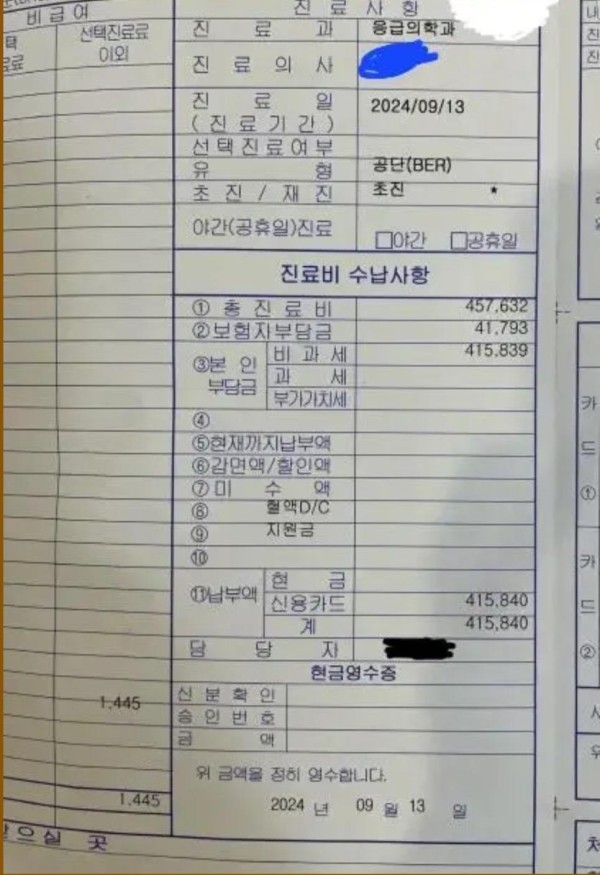 비급여
진 료 사 항
선택진료료
이외
진 료 과 응급의학과
진 료 의 사
진 료 일
(진료기간)
2024/09/13
선택진료여부
유 형 공단(BER)
초 진 / 재 진 초진 *
야간(공휴일)진료 □야간 □공휴일
진료비 수납사항
① 총 진 료 비 457,632
②보험자부담금 41,793
③본 인
부담금
비 과 세 415,839
과 세
부가가치세
④
⑤현재까지납부액
⑥감면액/할인액
⑦미 수 액
⑧ 혈액D/C
⑨ 지원금
⑩
⑪납부액
현 금
신용카드 415,840
계 415,840
담 당 자
현금영수증
신 분 확 인
승 인 번 호
금 액
1,445
위 금액을 정히 영수합니다.
1,445
2024 년 09 월 13 일
으실 곳
카
드
①
카
드
②